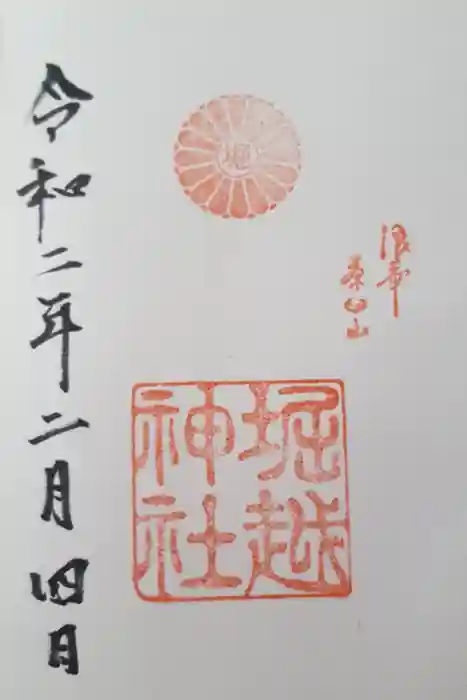 堀
浪華
茶臼山
堀越
神社
令和二年二月四日